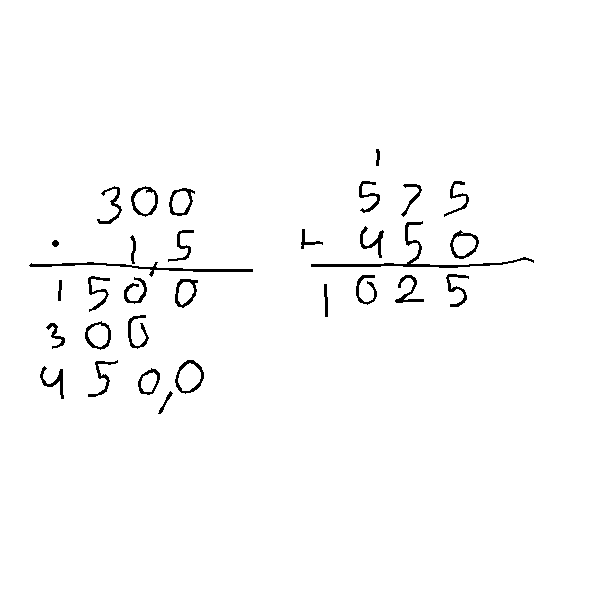 300
· 1,5
1500
300
450,0
1
575
+ 450
1025